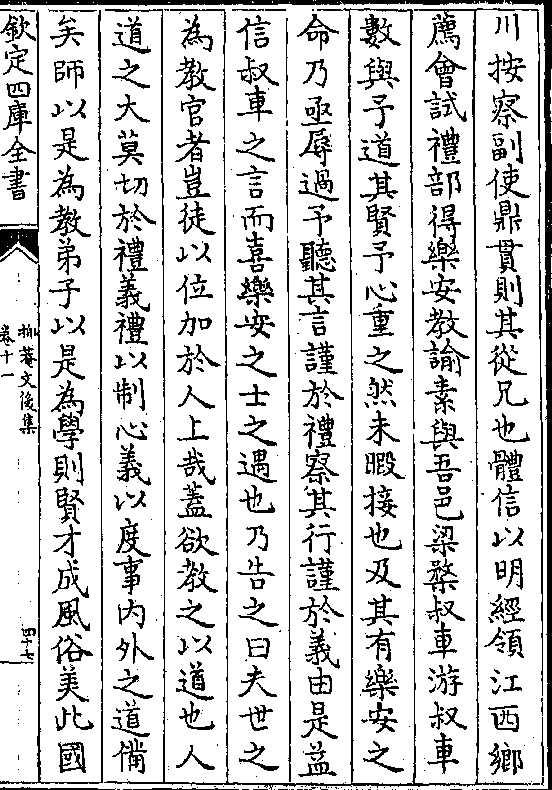 川按察副使鼎貫則其從兄也體信以明經領江西鄉
薦會試禮部得樂安教諭素與吾邑梁楘叔車游叔車
數與予道其賢予心重之然未暇接也及其有樂安之
命乃亟辱過予聽其言謹於禮察其行謹於義由是益
信叔車之言而喜樂安之士之遇也乃告之曰夫世之
為教官者豈徒以位加於人上哉蓋欲教之以道也人
道之大莫切於禮義禮以制心義以度事内外之道備
矣師以是為教弟子以是為學則賢才成風俗美此國
欽定四庫全書
抑菴文後集
卷十一
四十七